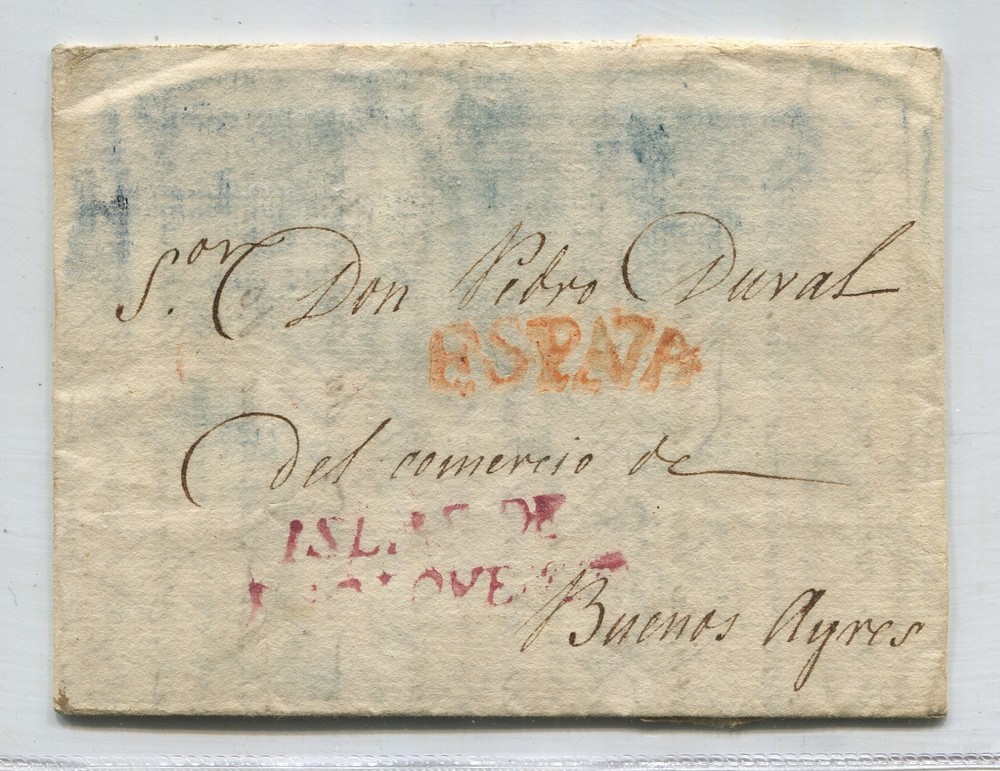 S.or Don Pedro Duval
ESPAÑA
del comercio de
ISLAS DE
Buenos Ayres